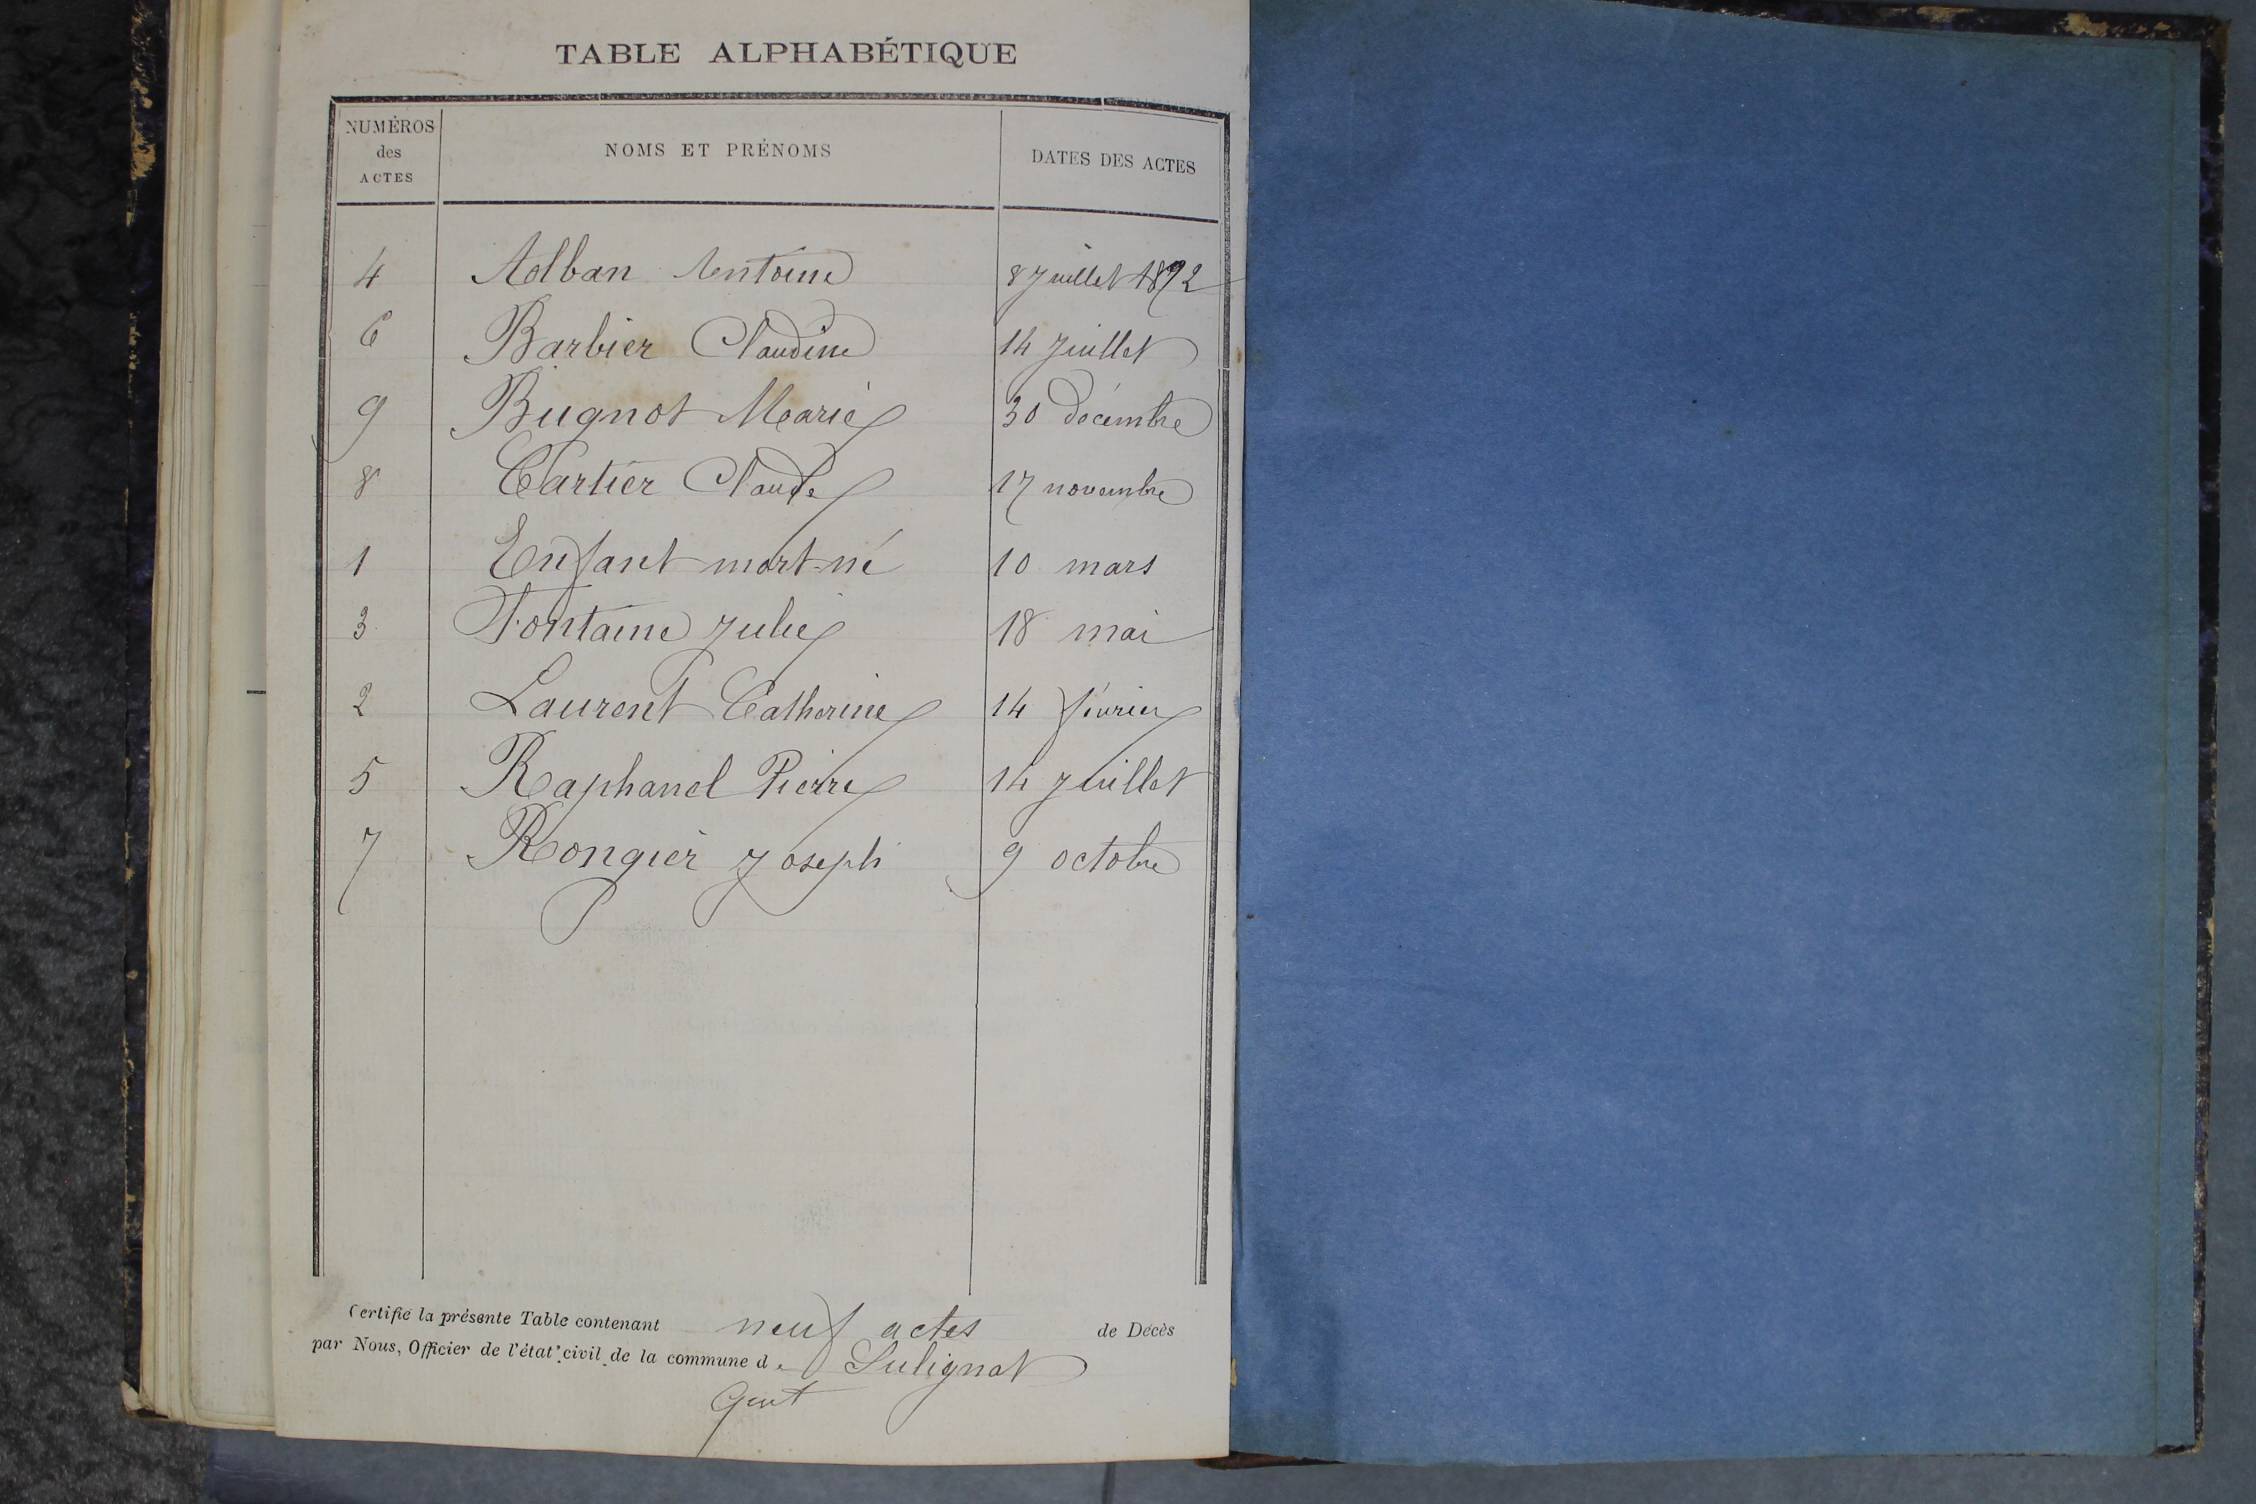 TABLE ALPHABÉTIQUE
NUMÉROS des ACTES NOMS ET PRÉNOMS DATES DES ACTES
4 Adban Antoine 8 Juillet 1892
6 Barbier Claudine 14 Juillet
9 Bugnot Marie 30 décembre
8 Cartier Claude 17 novembre
1 Enfant mort-né 10 mars
3 Fontaine Julie 18 mai
2 Laurent Catherine 14 février
5 Raphanel Pierre 14 Juillet
7 Rongier Joseph 9 octobre
Certifié la présente Table contenant neuf actes de Décès
par Nous, Officier de l'état civil de la commune de Sulignat